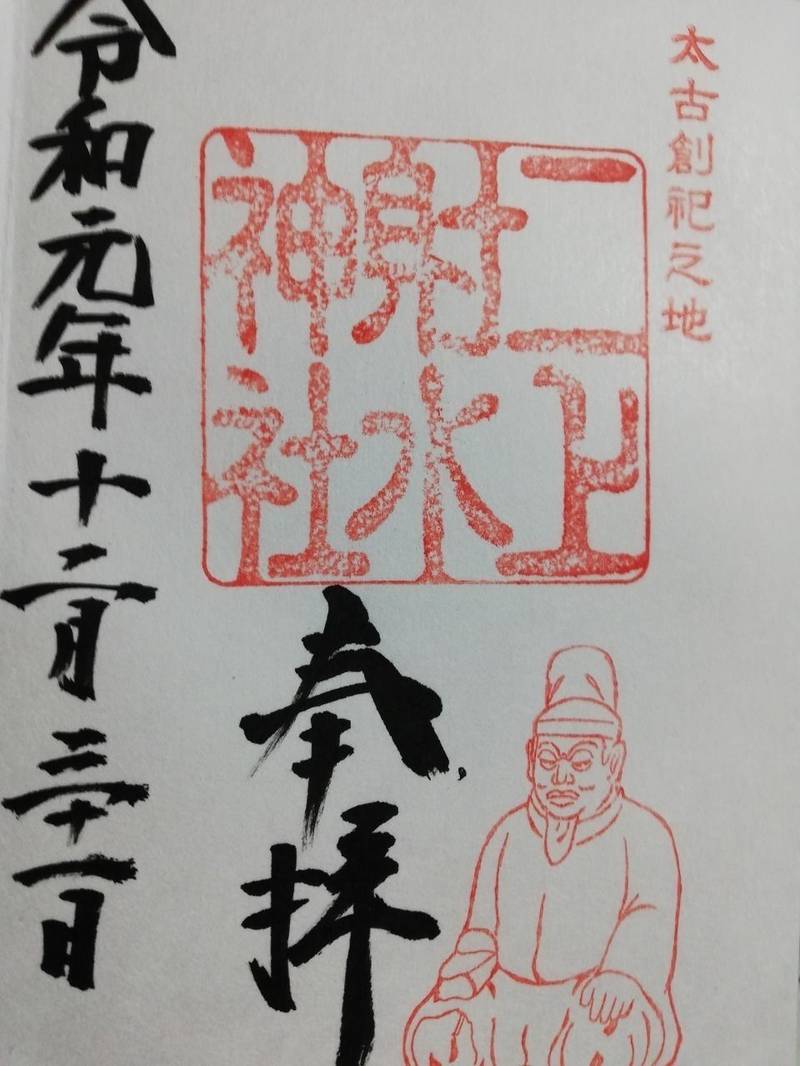 太古創祀之地
二上
射水
神社
奉拝
令和元年十二月三十一日